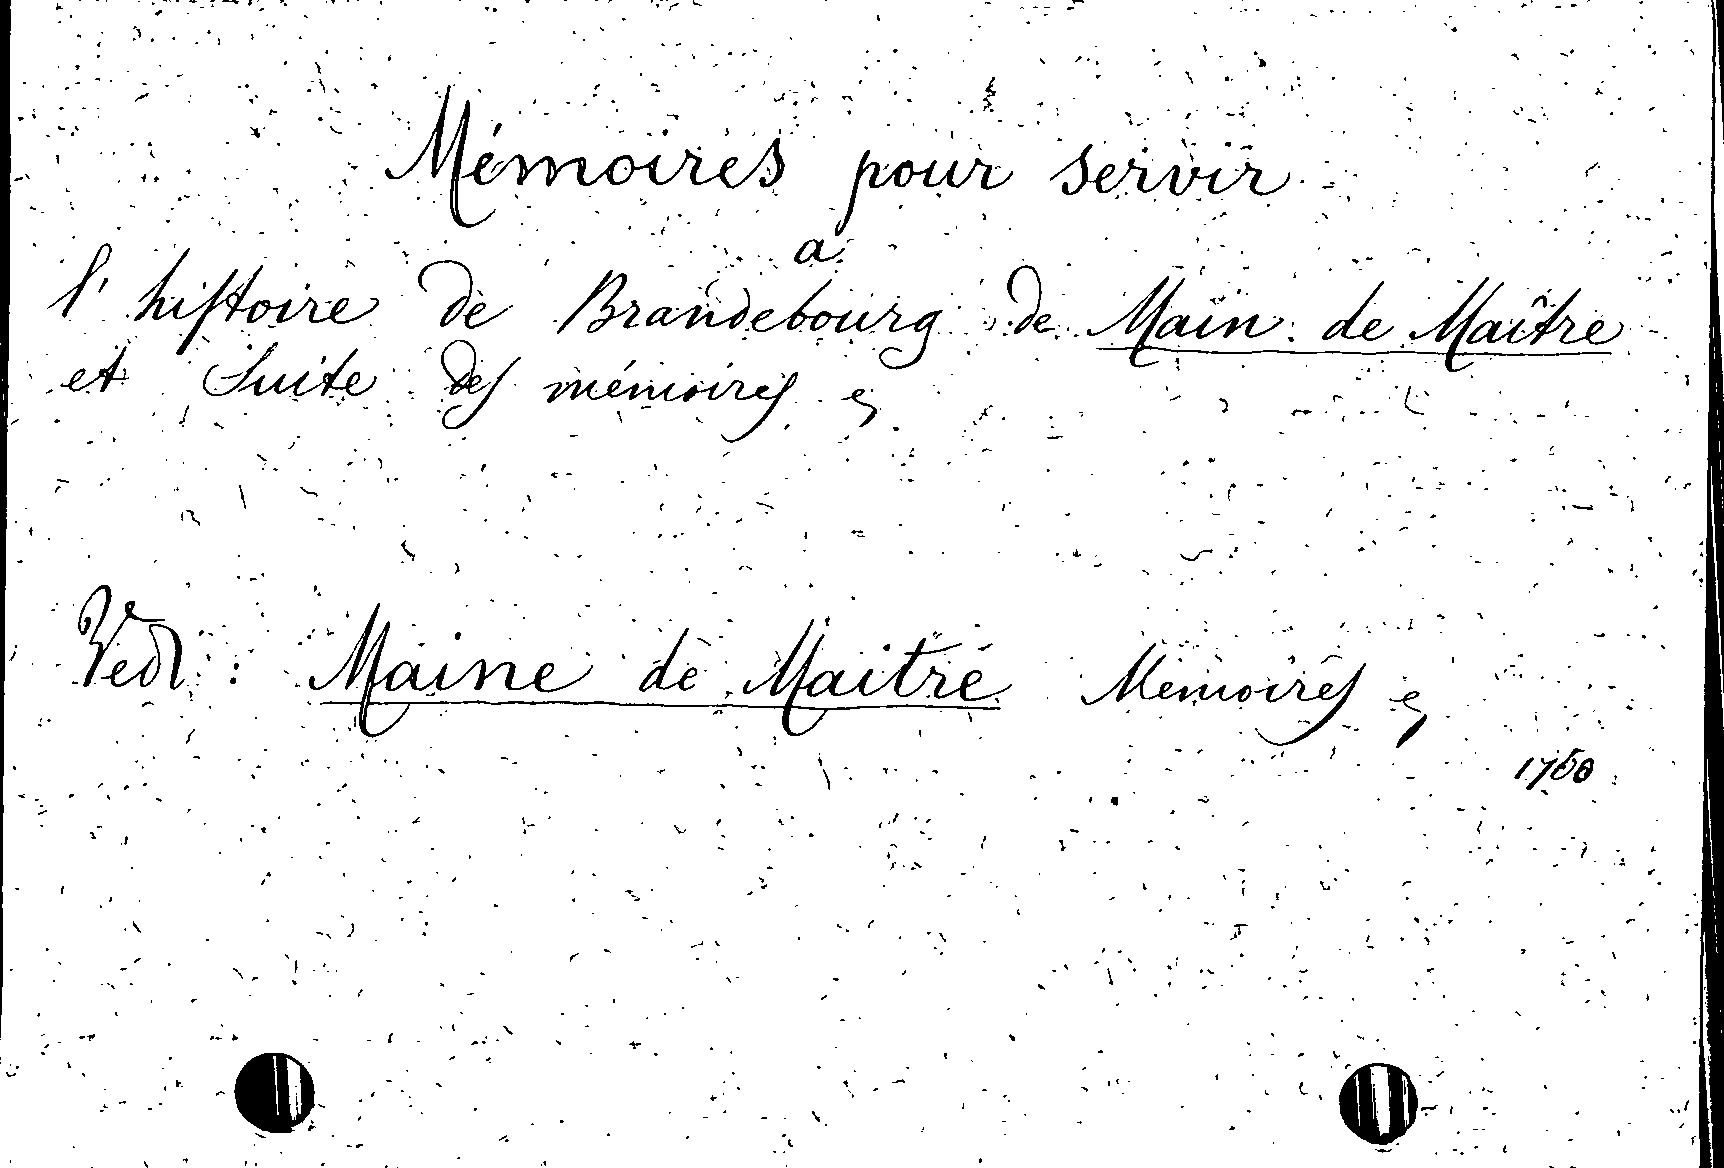 Mémoires pour servir
a
l'hiſtoire de Brandebourg de Main de Maître
et Suite deſ mémoireſ
Vedi: Maine de Maitre Mémoireſ
1760